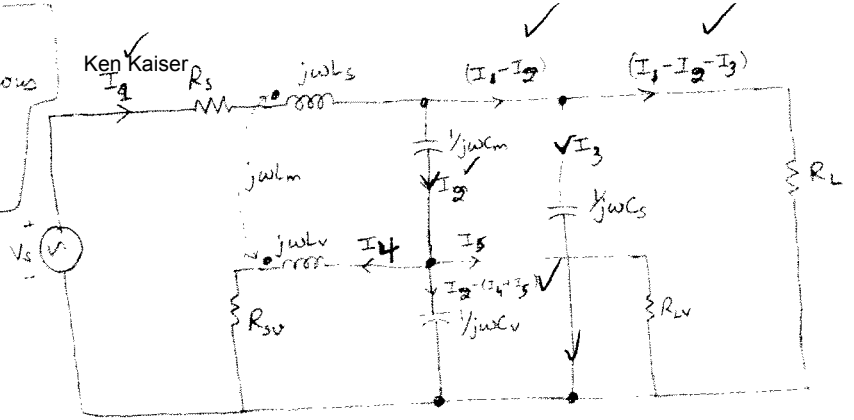 ous
Ken Kaiser
I1
RS
jωLS
(I1-I2)
(I1-I2-I3)
1/jωCm
I3
RL
jωLm
I2
1/jωCS
+
VS
-
jωLV
I4
I5
I2-(I4+I5)
RSV
1/jωCV
RLV